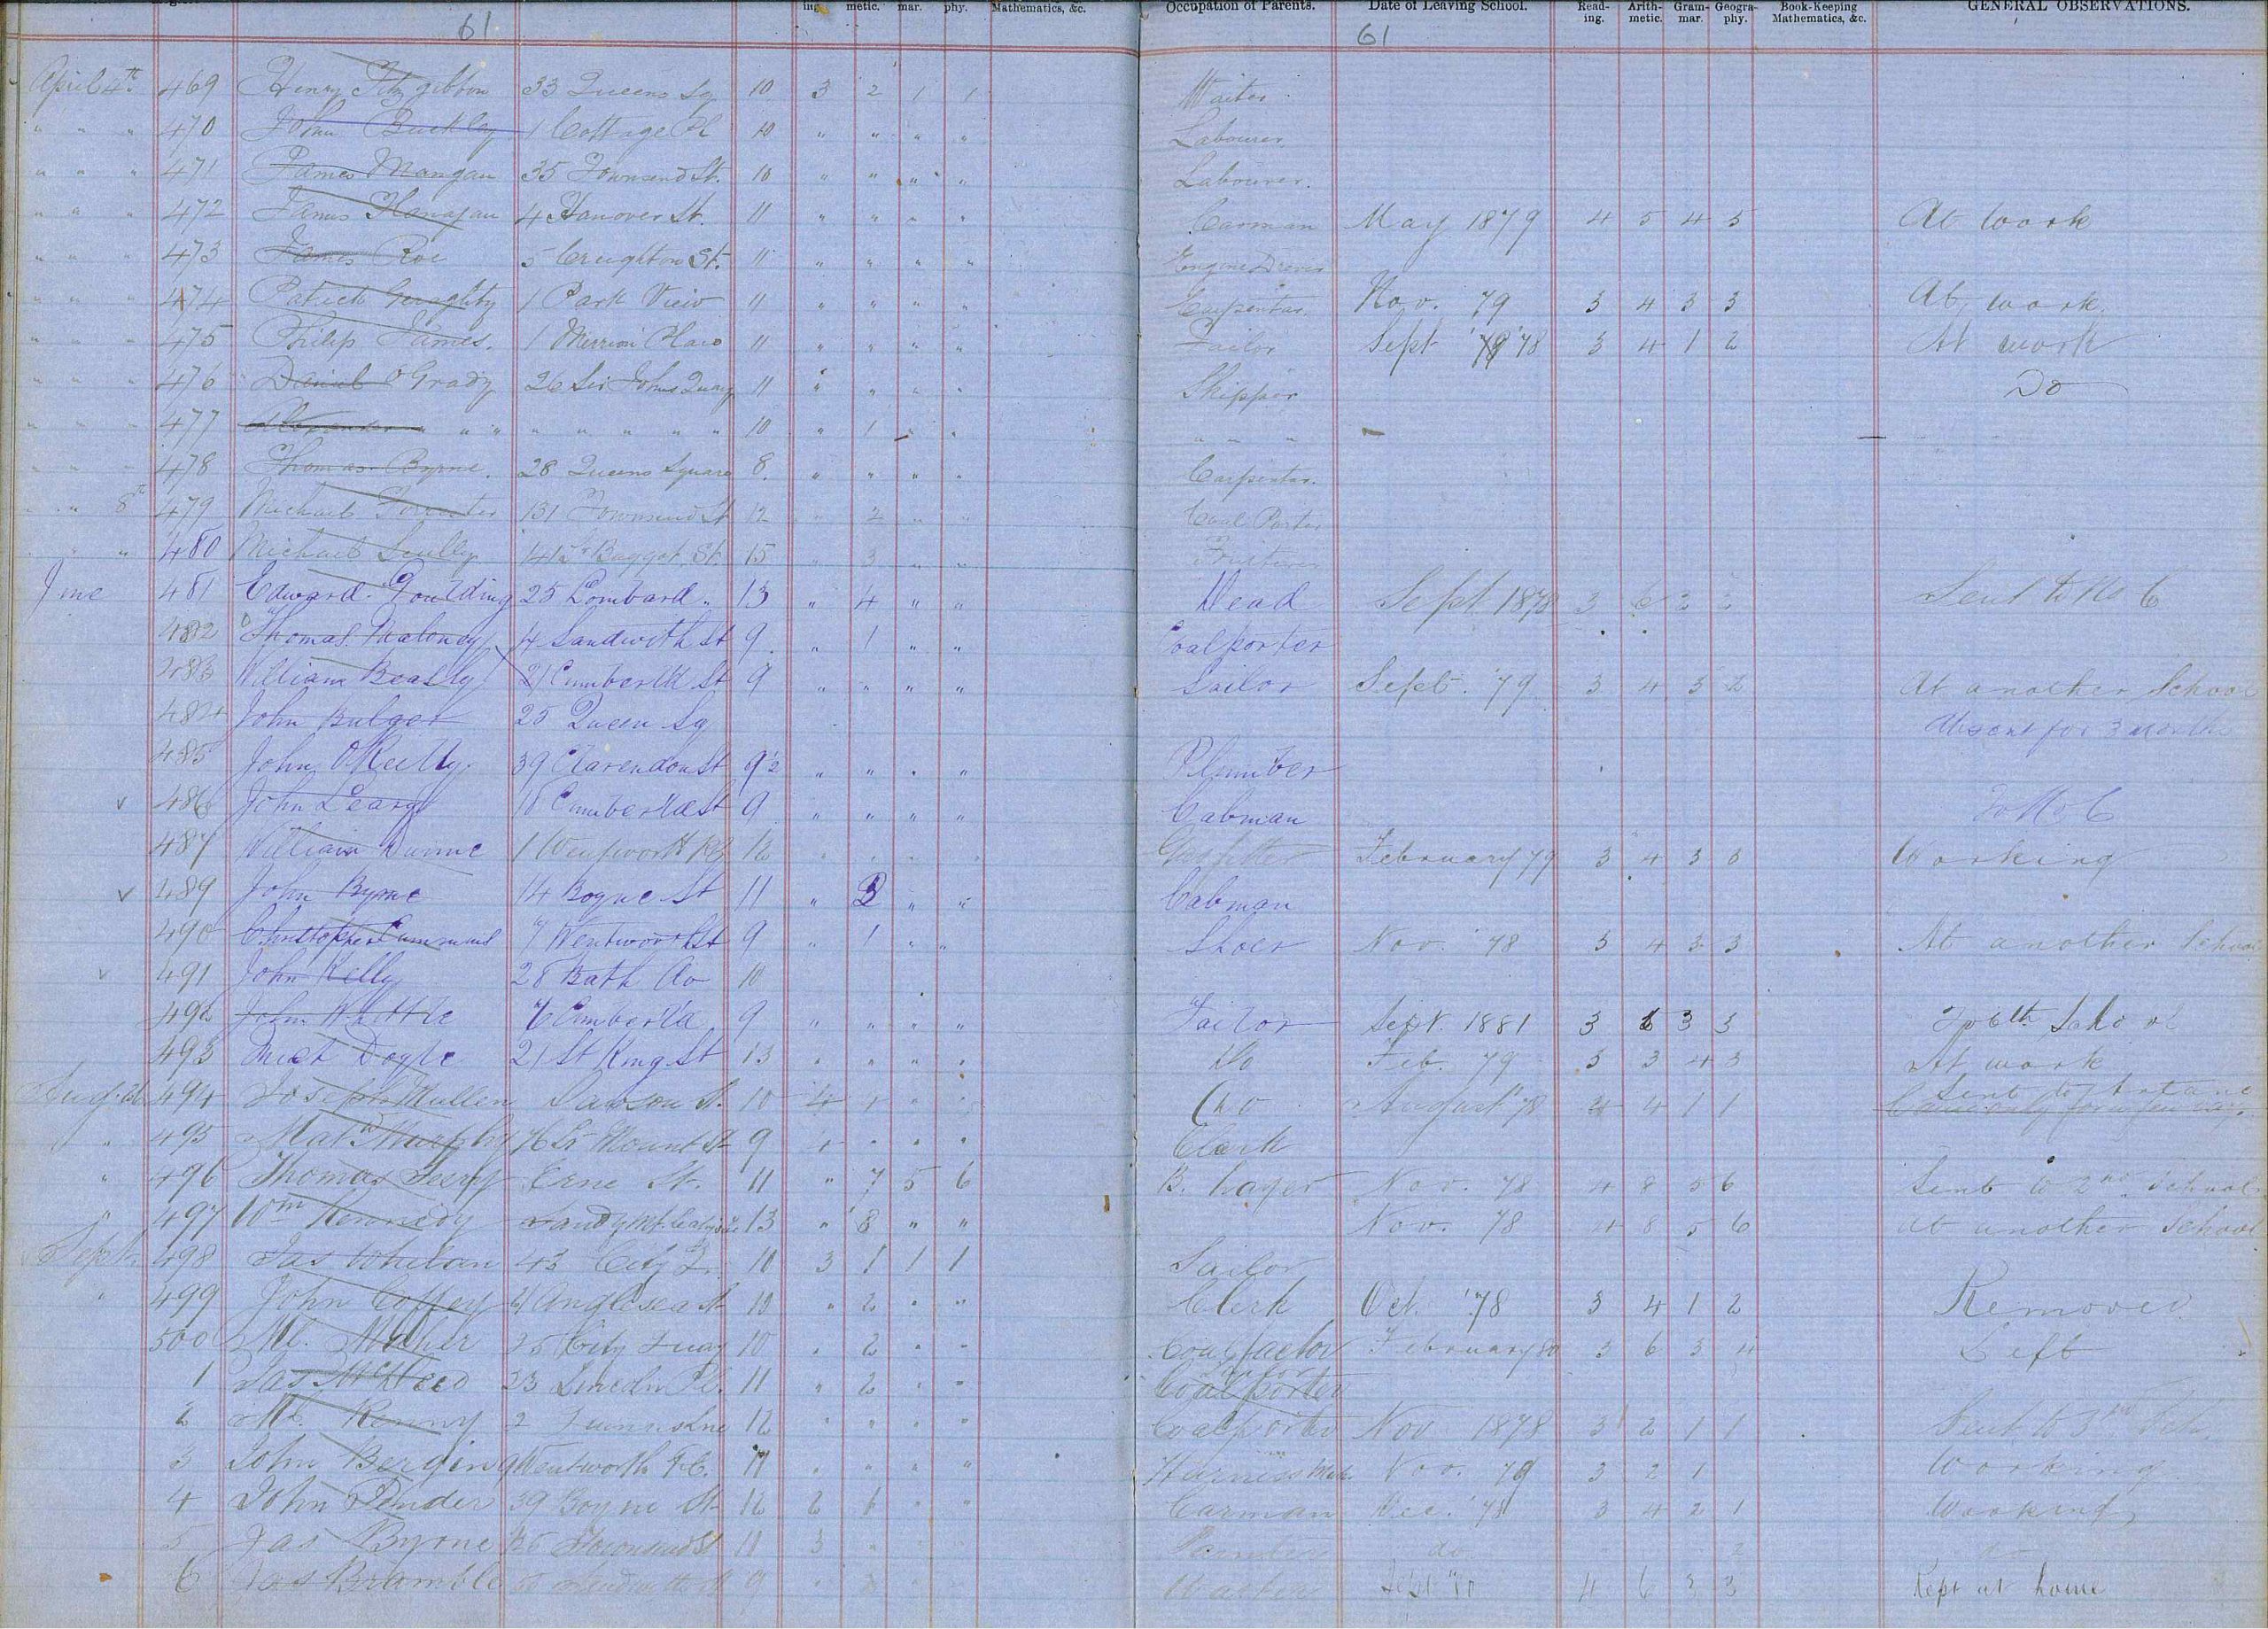 ing metic. mar. phy. Mathematics, &c. Occupation of Parents. Date of Leaving School. Read-ing. Arith-metic. Gram-mar. Geogra-phy. Book-Keeping Mathematics, &c. GENERAL OBSERVATIONS.
61 61
April 4th 469 Henry Fitzgibbon 33 Queens Sq 10 3 2 1 1 Waiter
" " " 470 John Buckley 1 Cottage Pl 10 " " " " Labourer
" " " 471 James Mangan 35 Townsend St. 10 " " " " Labourer.
" " " 472 James Flanagan 4 Hanover St. 11 " " " " Carman May 1879 4 5 4 5 At work
" " " 473 James Roe 5 Creighton St. 11 " " " " Engine Driver
" " " 474 Patrick Geraghty 1 Park View 11 " " " " Carpenter. Nov. 79 3 4 3 3 At work.
" " " 475 Philip James. 1 Merrion Place 11 " " " " Tailor Sept '78 3 4 1 2 At work
" " " 476 Daniel O'Grady 26 Sir Johns Quay 11 " " " " Skipper Do
" " " 477 Alexander " " " " " " " 10 " 1 " " " " "
" " " 478 Thomas Byrne. 28 Queens Square 8. " " " " Carpenter.
" " 8th 479 Michael Forrester 131 Townsend St 12 " 2 " " Coal Porter
" " " 480 Michael Scully 141 Lr Baggot St. 15 " 3 " "
June 481 Edward Goulding 25 Lombard " 13 " 4 " " Dead Sept 1878 3 6 2 2 Sent to No 6
482 Thomas Maloney 4 Sandwith St 9 " 1 " " Coalporter
483 William Beasly 21 Cumberld St 9 " " " " Sailor Sept. '79 3 4 3 2 At another School
484 John Bulger 25 Queen Sq Absent for 3 months
485 John O'Reilly 39 Clarendon St 9½ " " " " Plumber
v 486 John Leary 18 Cumberld St 9 " " " " Cabman To No 6
487 William Dunne 1 Wentworth Pl 12 " " " " Gasfitter February 79 3 4 3 3 Working
v 489 John Byrne 14 Boyne St 11 " 2 " " Cabman
490 Christopher Cummins 7 Wentworth St 9 " 1 " " Shoer Nov. '78 3 4 3 3 At another School
v 491 John Kelly 28 Bath Av 10
492 John Whittle 7 Cumberld 9 " " " " Tailor Sept. 1881 3 3 3 To 6th School
493 Mich Doyle 21 St King St 13 " " " " Do Feb. 79 3 3 4 3 At work
Aug. 494 Joseph Mullen Dawson St. 10 4 1 " " Do August '78 4 4 1 1 Sent to Artane
Came only for a few days.
" 495 Matw Murphy 76 Lr Mount St 9 " " " Clerk
" 496 Thomas Erne St. 11 " 7 5 6 B. Layer Nov. 78 4 8 5 6 Sent to 2nd School
" 497 Wm Kennedy Sandymt 13 " 8 " " Nov. 78 4 8 5 6 At another School
Sept. 498 Jas Whelan 43 City Q. 10 3 1 1 1 Sailor
" 499 John Coffey Anglesea St 10 " 2 " " Clerk Oct. '78 3 4 1 2 Removed
500 Ml. Maher 35 City Quay 10 " 2 " " Coal factor February 80 3 6 3 4 Left
1 Jas 23 Lincoln Pl. 11 " 2 " " Coal porter
2 Ml. Kenny 2 12 " " " " Coalporter Nov 1878 3 2 1 1 Sent to 3rd Sch.
3 John Bergin Wentworth Pl. 11 " " " " Harness Mak. Nov. 79 3 2 1 Working
4 John Pender 39 Boyne St. 12 2 1 " " Carman Dec. '78 3 4 2 1 Working
5 Jas Byrne Townsend St 11 3 " Painter do 2
6 Jas Bramble 9 4 6 3 3 Kept at home